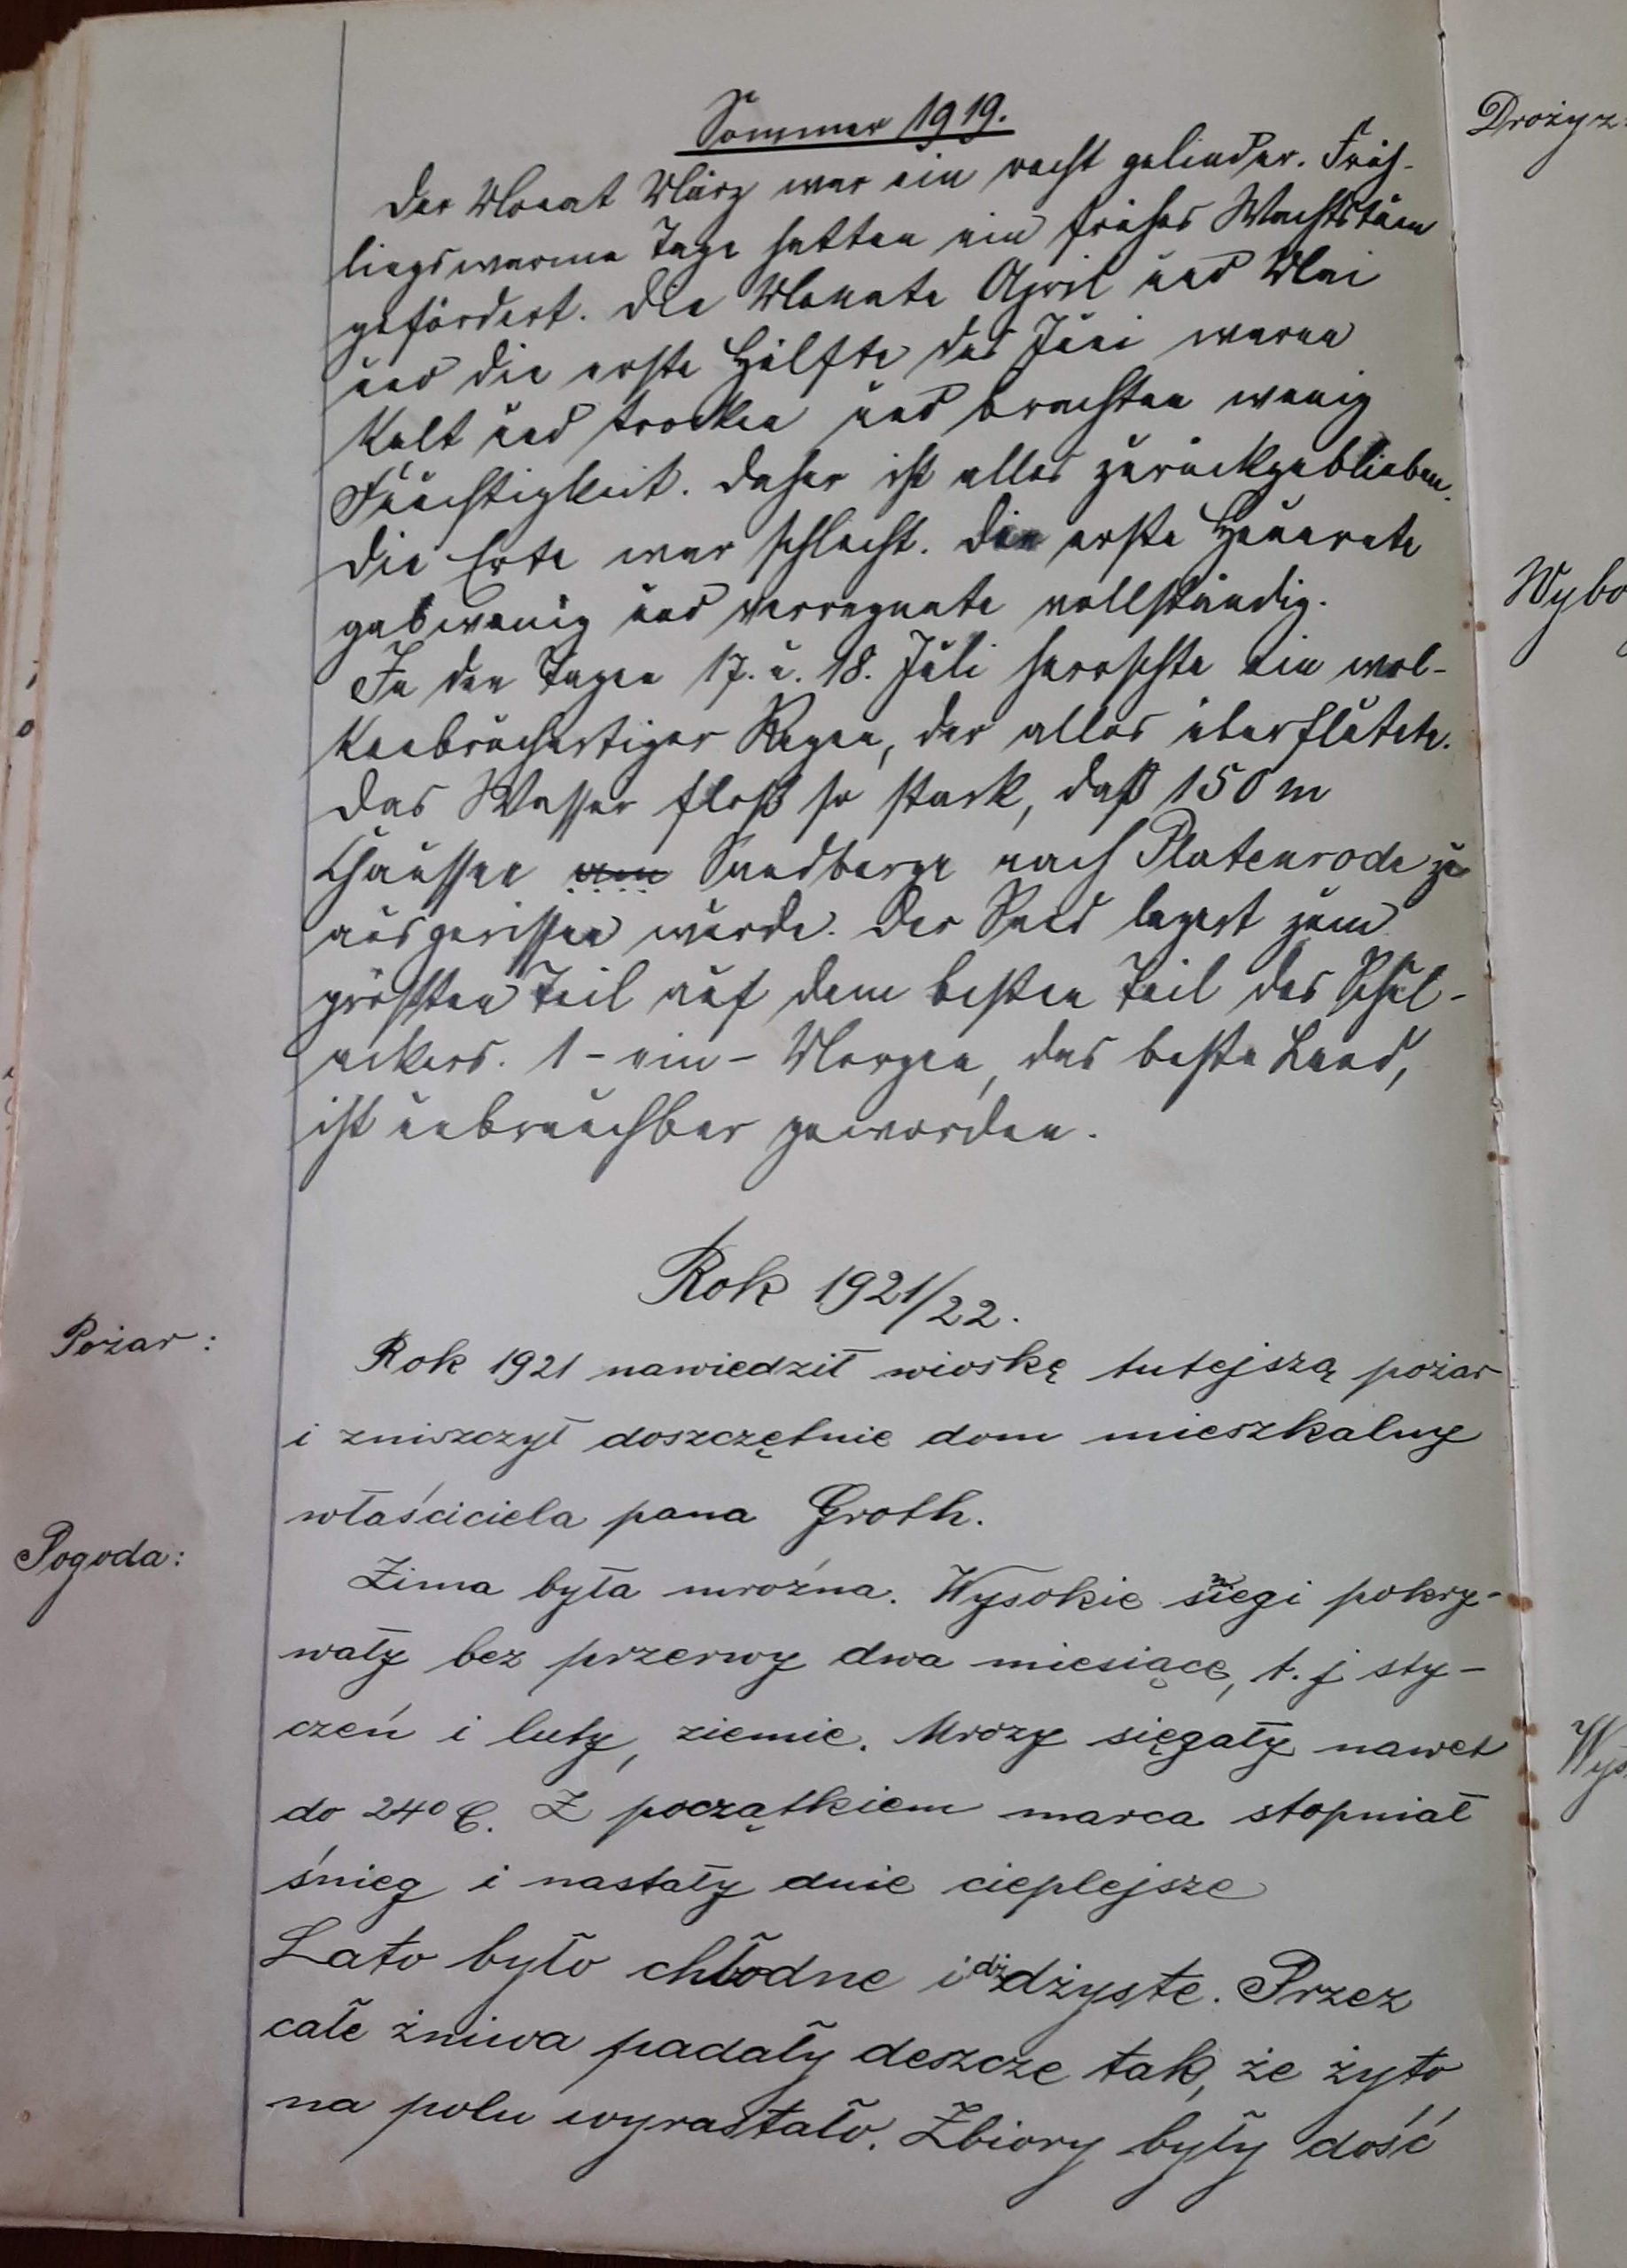 Sommer 1919.
Der Monat März war ein recht gelinder. Früh-
lingswarme Tage hatten ein frühes Wachstum
gefördert. Die Monate April und Mai
und die erste Hälfte des Juni waren
kalt und trocken und brachten wenig
Feuchtigkeit. Daher ist alles zurückgeblieben.
Die Erte war schlecht. Die erste Heuernte
gab wenig und verregnete vollständig.
In den Tagen 17. u. 18. Juli herrschte ein wol-
kenbruchartiger Regen, der alles überflutete.
Das Wasser floß so stark, daß 150 m
Chaussee am Sandberge nach Platenrode zu
ausgerissen wurde. Der Sand lagert zum
grössten Teil auf dem besten Teil des Schul-
ackers. 1 - ein - Morgen, das beste Land,
ist unbrauchbar geworden.
Rok 1921/22.
Pożar:
Rok 1921 nawiedził wioskę tutejszą pożar
i zniszczył doszczętnie dom mieszkalny
właściciela pana Groth.
Pogoda:
Zima była mroźna. Wysokie śniegi pokry-
wały bez przerwy dwa miesiące, t. j sty-
czeń i luty, ziemie. Mrozy sięgały nawet
do 24° C. Z początkiem marca stopniał
śnieg i nastały dnie cieplejsze
Lato było chłodne i dżdżyste. Przez
całe żniwa padały deszcze tak, że żyto
na polu wyrastało. Zbiory były dość
Drożyz
Wybo